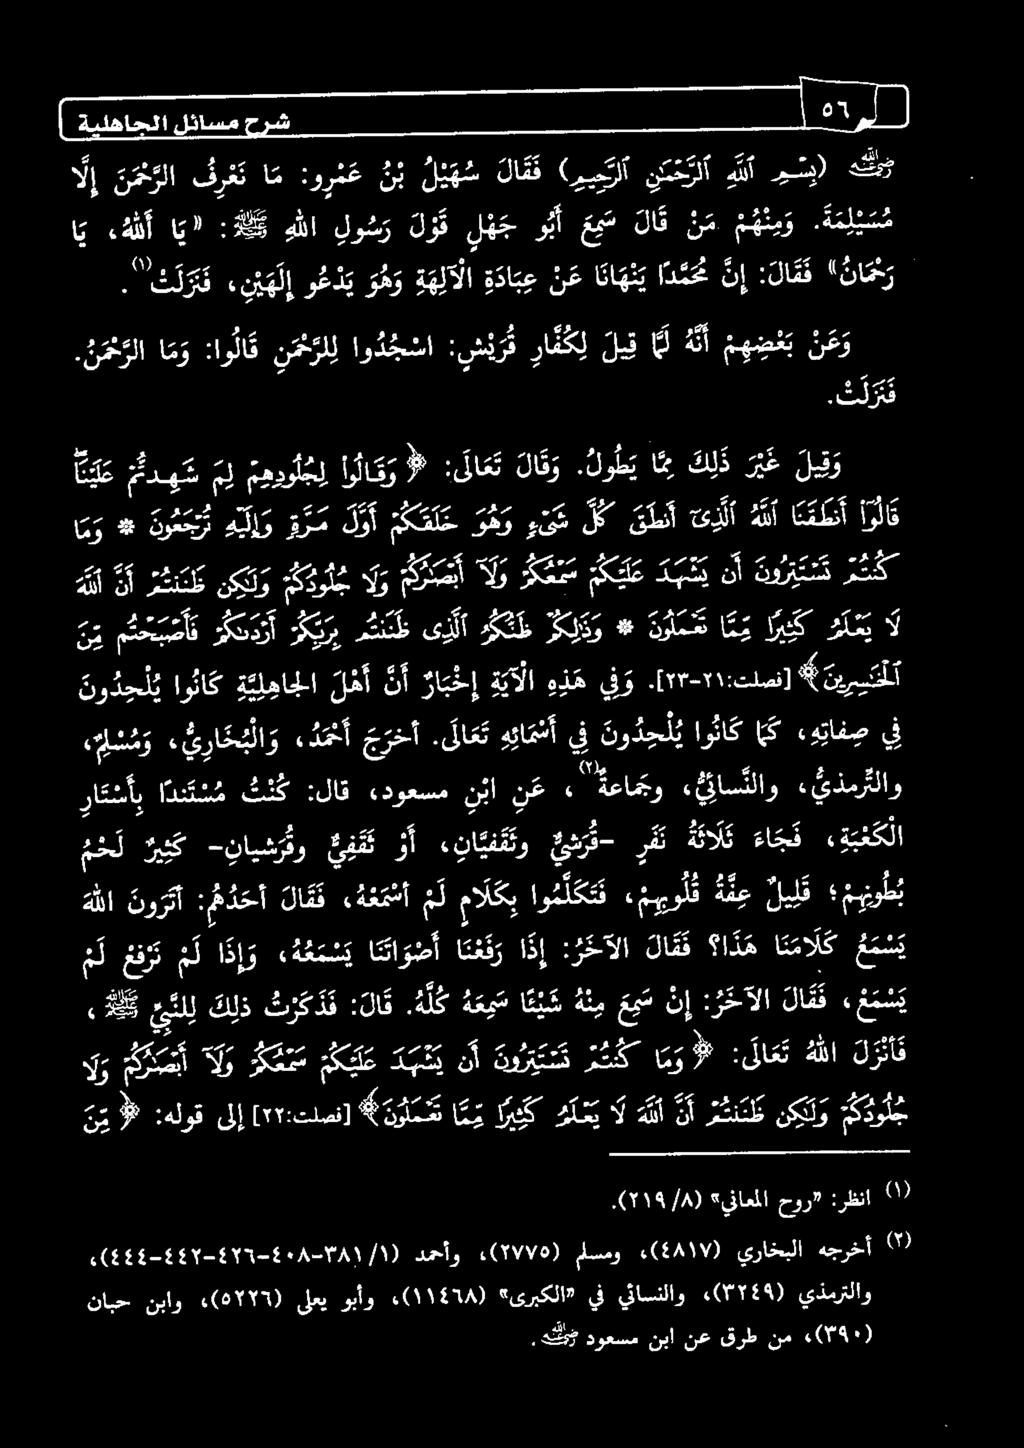 ٥٦ شرح مسائل الجاهلية
﵁ (بِسْمِ اللهِ الرَّحْمَنِ الرَّحِيمِ) فَقَالَ سُهَيْلُ بْنُ عَمْرٍو: مَا نَعْرِفُ الرَّحْمَنَ إِلَّا
مُسَيْلِمَةَ. وَمِنْهُمْ مَنْ قَالَ سَمِعَ أَبُو جَهْلٍ قَوْلَ رَسُولِ اللهِ ﷺ: «يَا أَللهُ، يَا
رَحْمَانُ» فَقَالَ: إِنَّ مُحَمَّدًا يَنْهَانَا عَنْ عِبَادَةِ الْآلِهَةِ وَهُوَ يَدْعُو إِلَهَيْنِ، فَنَزَلَتْ(١).
وَعَنْ بَعْضِهِمْ أَنَّهُ لَمَّا قِيلَ لِكُفَّارِ قُرَيْشٍ: اسْجُدُوا لِلرَّحْمَنِ قَالُوا: وَمَا الرَّحْمَنُ.
فَنَزَلَتْ.
وَقِيلَ غَيْرَ ذَلِكَ مِمَّا يَطُولُ. وَقَالَ تَعَالَى: ﴿وَقَالُوا لِجُلُودِهِمْ لِمَ شَهِدتُّمْ عَلَيْنَا
قَالُوا أَنطَقَنَا اللَّهُ الَّذِي أَنطَقَ كُلَّ شَيْءٍ وَهُوَ خَلَقَكُمْ أَوَّلَ مَرَّةٍ وَإِلَيْهِ تُرْجَعُونَ * وَمَا
كُنتُمْ تَسْتَتِرُونَ أَن يَشْهَدَ عَلَيْكُمْ سَمْعُكُمْ وَلَا أَبْصَارُكُمْ وَلَا جُلُودُكُمْ وَلَكِن ظَنَنتُمْ أَنَّ اللَّهَ
لَا يَعْلَمُ كَثِيرًا مِّمَّا تَعْمَلُونَ * وَذَلِكُمْ ظَنُّكُمُ الَّذِي ظَنَنتُم بِرَبِّكُمْ أَرْدَاكُمْ فَأَصْبَحْتُم مِّنَ
الْخَاسِرِينَ﴾ [فصلت:٢١-٢٣]. وَفِي هَذِهِ الْآيَةِ إِخْبَارٌ أَنَّ أَهْلَ الجاهِلِيَّةِ كَانُوا يُلْحِدُونَ
فِي صِفاتِهِ، كَمَا كَانُوا يُلْحِدُونَ فِي أَسْمَائِهِ تَعَالَى. أخرَجَ أَحْمَدُ، وَالْبُخَارِيُّ، وَمُسْلِمٌ،
والتِّرمذيُّ، والنَّسائِيُّ، وجَماعةٌ(٢)، عَنِ ابْنِ مسعود، قال: كُنْتُ مُسْتَنِدًا بِأَسْتَارِ
الْكَعْبَةِ، فَجَاءَ ثَلَاثَةُ نَفَرٍ -قُرَشيٌّ وثَقَفِيَّانِ، أَوْ ثَقَفِيٌّ وقُرَشيانِ- كَثِيرٌ لَحْمُ
بُطُونِهِمْ؛ قَلِيلٌ فِقْهُ قُلُوبِهِمْ، فَتَكَلَّمُوا بِكَلَامٍ لَمْ أَسْمَعْهُ، فَقَالَ أحَدُهُمْ: أتَرَونَ اللهَ
يَسْمَعُ كَلامَنَا هَذَا؟ فَقَالَ الآخَرُ: إِذَا رَفَعْنَا أَصْوَاتَنَا يَسْمَعُهُ، وَإِذَا لَمْ نَرْفَعْ لَمْ
يَسْمَعْ، فَقَالَ الآخَرُ: إنْ سَمِعَ مِنْهُ شَيْئًا سَمِعَهُ كُلَّهُ. قَالَ: فَذَكَرْتُ ذلِكَ لِلنَّبِيِّ ﷺ،
فَأَنْزَلَ اللهُ تَعَالَى: ﴿وَمَا كُنتُمْ تَسْتَتِرُونَ أَن يَشْهَدَ عَلَيْكُمْ سَمْعُكُمْ وَلَا أَبْصَارُكُمْ وَلَا
جُلُودُكُمْ وَلَكِن ظَنَنتُمْ أَنَّ اللَّهَ لَا يَعْلَمُ كَثِيرًا مِّمَّا تَعْمَلُونَ﴾ [فصلت:٢٢] إلى قوله: ﴿مِّنَ
(١) انظر: «روح المعاني» (٨/ ٢١٩).
(٢) أخرجه البخاري (٤٨١٧)، ومسلم (٢٧٧٥)، وأحمد (١/ ٣٨١-٤٠٨-٤٢٦-٤٤٢-٤٤٤)،
والترمذي (٣٢٤٩)، والنسائي في «الكبرى» (١١٤٦٨)، وأبو يعلى (٥٢٢٦)، وابن حبان
(٣٩٠)، من طرق عن ابن مسعود ﵁.